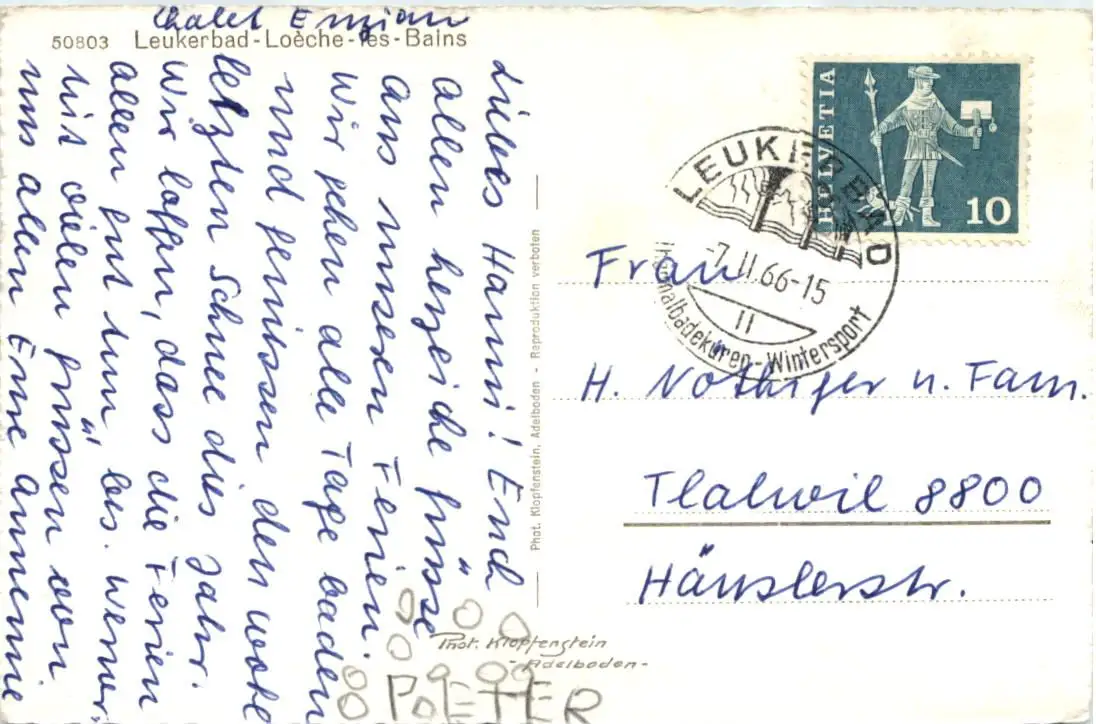 Chalet Enzian
50803 Leukerbad-Loèche-les-Bains
Liebes Hanni! Euch
allen herzliche Grüsse
aus unseren Ferien.
Wir gehen alle Tage baden
und geniessen den wohl
letzten Schnee dies Jahr.
Wir hoffen, dass die Ferien
allen gut tun, bes. Werner.
Mit vielen Grüssen von
uns allen Eure Annemie
Phot. Klopfenstein, Adelboden - Reproduktion verboten
HELVETIA
10
LEUKERBAD
-7.II.66-15
II
Thermalbadekuren - Wintersport
Frau
H. Nothiger u. Fam.
Thalwil 8800
Häuslerstr.
Phot. Klopfenstein
- Adelboden -
PETER